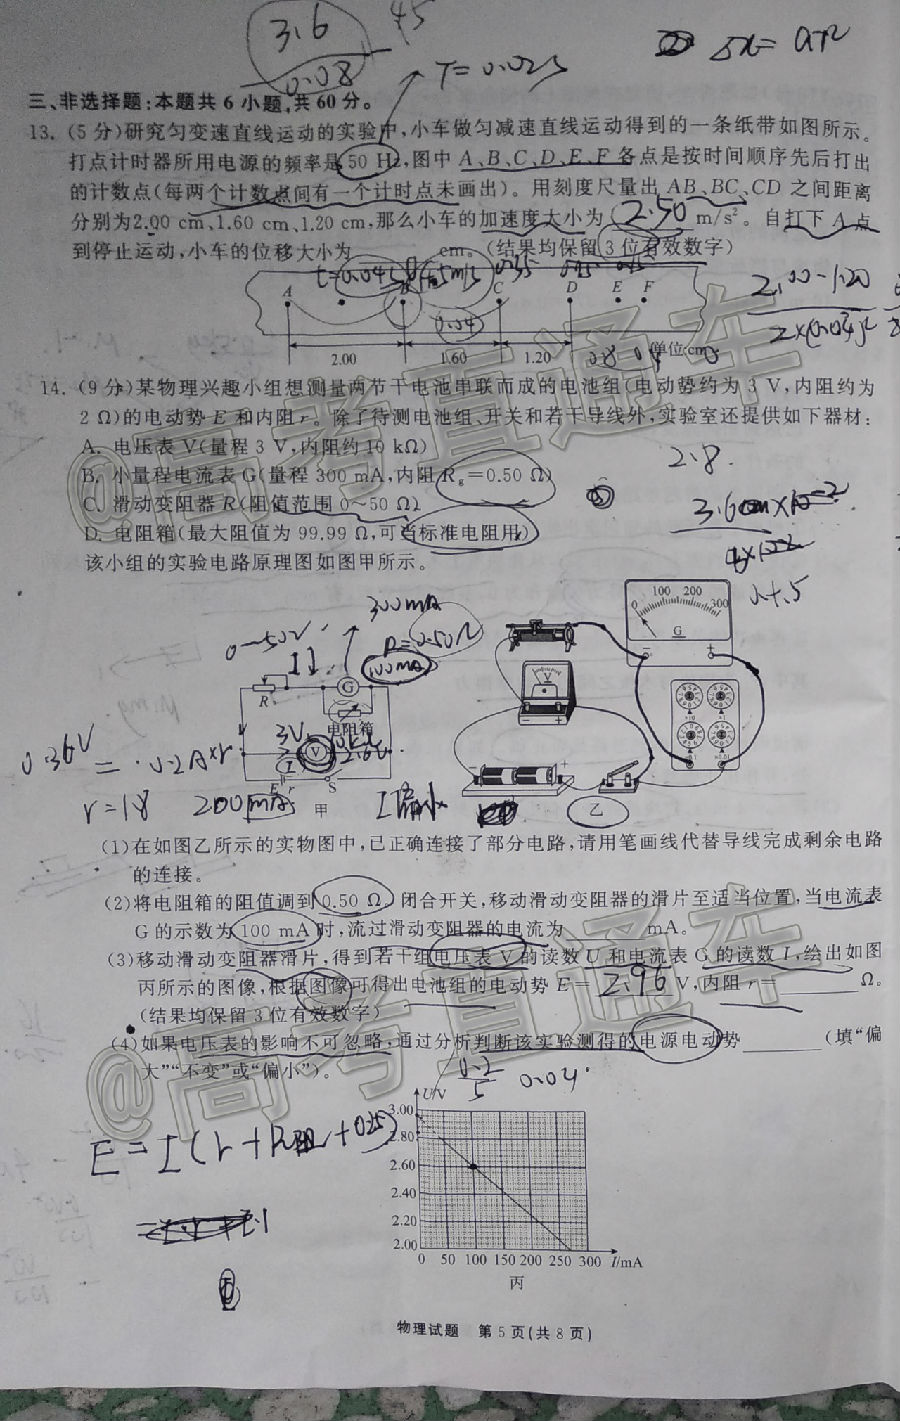 3.6
0.08
45
Δx=aT²
T=0.02s
三、非选择题:本题共6小题,共60分。
13.(5分)研究匀变速直线运动的实验中,小车做匀减速直线运动得到的一条纸带如图所示。
打点计时器所用电源的频率是50 Hz,图中A、B、C、D、E、F各点是按时间顺序先后打出
的计数点(每两个计数点间有一个计时点未画出)。用刻度尺量出AB、BC、CD之间距离
分别为2.00 cm、1.60 cm、1.20 cm,那么小车的加速度大小为 2.50 m/s²。自打下A点
到停止运动,小车的位移大小为 cm。(结果均保留3位有效数字)
A B C D E F
0.04
2.00 1.60 1.20 单位:cm
2.00-1.20
2×(0.04)²
14.(9分)某物理兴趣小组想测量两节干电池串联而成的电池组(电动势约为3 V,内阻约为
2 Ω)的电动势E和内阻r。除了待测电池组、开关和若干导线外,实验室还提供如下器材:
A. 电压表V(量程3 V,内阻约10 kΩ)
B. 小量程电流表G(量程300 mA,内阻Rg=0.50 Ω)
C. 滑动变阻器R(阻值范围0~50 Ω)
D. 电阻箱(最大阻值为99.99 Ω,可当标准电阻用)
该小组的实验电路原理图如图甲所示。
2.8
300mA
R=0.50Ω
100mA
R G
电阻箱
3V
V
E r S
甲
0 100 200 300
G
- +
V
- +
乙
0.36V = 0.2A×r
r=1.8
200mA
I偏小
(1)在如图乙所示的实物图中,已正确连接了部分电路,请用笔画线代替导线完成剩余电路
的连接。
(2)将电阻箱的阻值调到0.50 Ω,闭合开关,移动滑动变阻器的滑片至适当位置,当电流表
G的示数为100 mA时,流过滑动变阻器的电流为 mA。
(3)移动滑动变阻器滑片,得到若干组电压表V的读数U和电流表G的读数I,绘出如图
丙所示的图像,根据图像可得出电池组的电动势E= 2.96 V,内阻r= Ω。
(结果均保留3位有效数字)
(4)如果电压表的影响不可忽略,通过分析判断该实验测得的电源电动势 (填“偏
大”“不变”或“偏小”)。
0.2
5
0.04
U/V
3.00
2.80
2.60
2.40
2.20
2.00
0 50 100 150 200 250 300 I/mA
丙
物理试题 第5页(共8页)
@高考直通车
@高考直通车